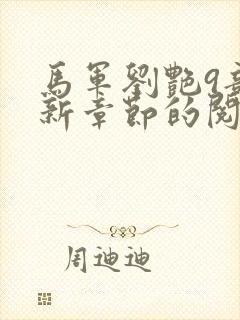 馬軍劉艷9章
新章節的閱
周迪迪